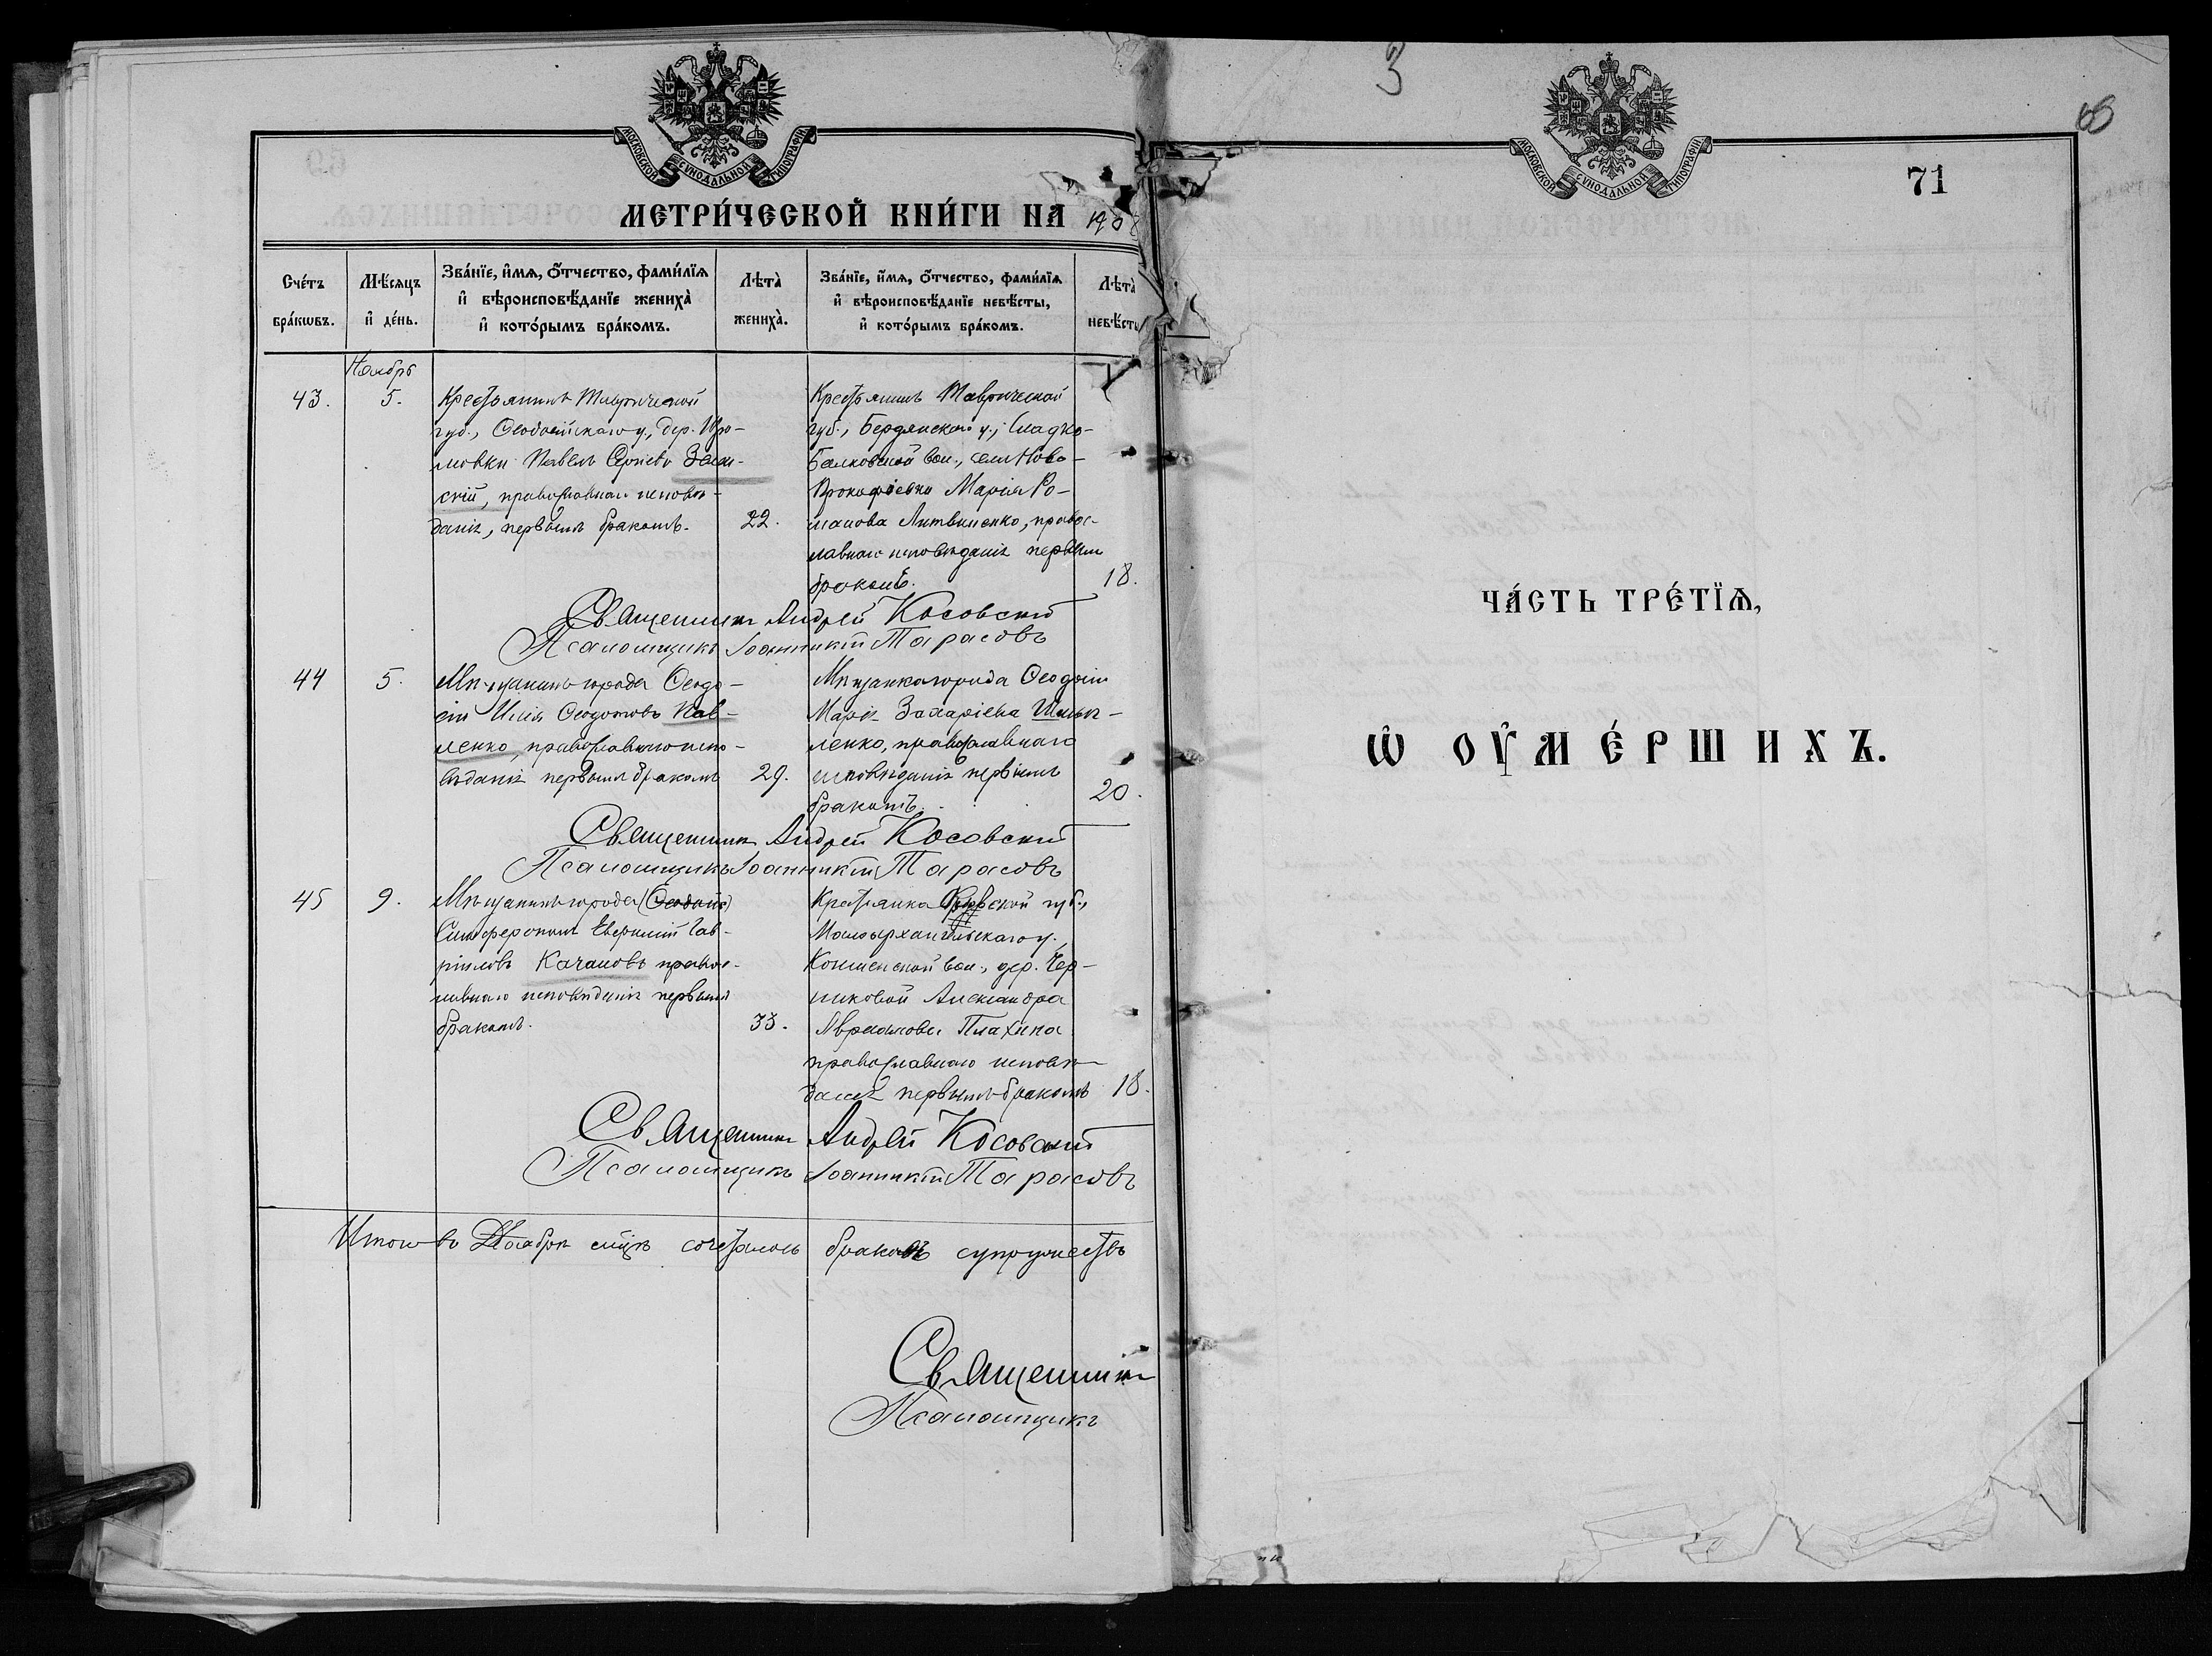 МОСКОВСКОЙ СѴНОДАЛЬНОЙ ТИПОГРАФІИ
МЕТРИ́ЧЕСКОЙ КНИ́ГИ НА 1908
Сче́тъ бра́кѡвъ.
Мѣ́сяцъ и҆ де́нь.
Зва́нїе, и҆́мѧ, ѻ҆́тчество, фами́лїѧ и҆ вѣроисповѣ́данїе жениха̀ и҆ кото́рымъ бра́комъ.
Лѣта̀ жениха̀.
Зва́нїе, и҆́мѧ, ѻ҆́тчество, фами́лїѧ и҆ вѣроисповѣ́данїе невѣ́сты, и҆ кото́рымъ бра́комъ.
Лѣта̀ невѣ́сты
Ноябрь
43.
5.
Крестьянинъ Таврической
губ., Ѳеодосійскаго у., дер.
Павелъ
скій, православнаго исповѣ-
данія, первымъ бракомъ.
22.
Крестьянка Таврической
губ., Бердянскаго у., Сладко-
Балковской вол., села Ново-
Прокофіевки Марія Ро-
манова Литвиненко, правос-
лавнаго исповѣданія первымъ
бракомъ.
18.
Священникъ Андрей Косовскій
Псаломщикъ Іоанникій Тарасовъ
44
5.
Мѣщанинъ города Ѳеодо-
сіи Илія Ѳедотовъ Пав-
ленко, православнаго испо-
вѣданія первымъ бракомъ
29.
Мѣщанка города Ѳеодосіи
Марія Захаріева
ленко, православнаго
исповѣданія первымъ
бракомъ.
20.
Священникъ Андрей Косовскій
Псаломщикъ Іоанникій Тарасовъ
45
9.
Мѣщанинъ города (Ѳеодосіи)
Симферополя Евгеній Гав-
ріиловъ Качановъ правос-
лавнаго исповѣданія первымъ
бракомъ.
33.
Крестьянка губ.,
Малоархангельскаго у.,
вол., дер. Чер-
никовой Александра
Авраамова Плахина
православнаго исповѣ-
данія первымъ бракомъ
18.
Священникъ Андрей Косовскій
Псаломщикъ Іоанникій Тарасовъ
Итого въ Ноябрѣ мѣсяцѣ сочеталось бракомъ супружествъ
Священникъ
Псаломщикъ
3
МОСКОВСКОЙ СѴНОДАЛЬНОЙ ТИПОГРАФІИ
71
ЧА́СТЬ ТРЕ́ТЇѦ,
Ѡ҆ ОУ҆МЕ́РШИХЪ.